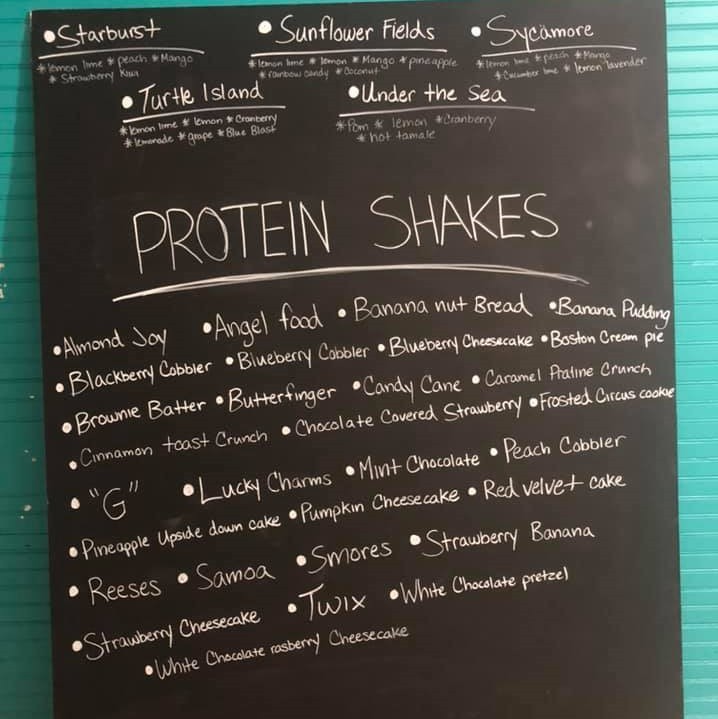 •Starburst • Sunflower Fields • Sycamore
*lemon lime *peach *Mango *lemon lime * lemon * Mango *pineapple *lemon lime *peach *Mango
* Strawberry Kiwi *rainbow candy *Coconut *Cucumber lime * lemon lavender
• Turtle Island •Under the Sea
*lemon lime * lemon * Cranberry *Pom * lemon *Cranberry
*lemonade *grape *Blue Blast * hot tamale
PROTEIN SHAKES
•Almond Joy •Angel food • Banana nut Bread •Banana Pudding
• Blackberry Cobbler • Blueberry Cobbler • Blueberry Cheesecake •Boston Cream pie
• Brownie Batter • Butterfinger •Candy Cane • Caramel Praline Crunch
• Cinnamon toast Crunch • Chocolate Covered Strawberry •Frosted Circus cookie
• "G" •Lucky Charms •Mint Chocolate • Peach Cobbler
•Pineapple Upside down cake •Pumpkin Cheesecake • Red velvet cake
• Reeses • Samoa •Smores • Strawberry Banana
•Strawberry Cheesecake • Twix •White Chocolate pretzel
•White Chocolate rasberry Cheesecake